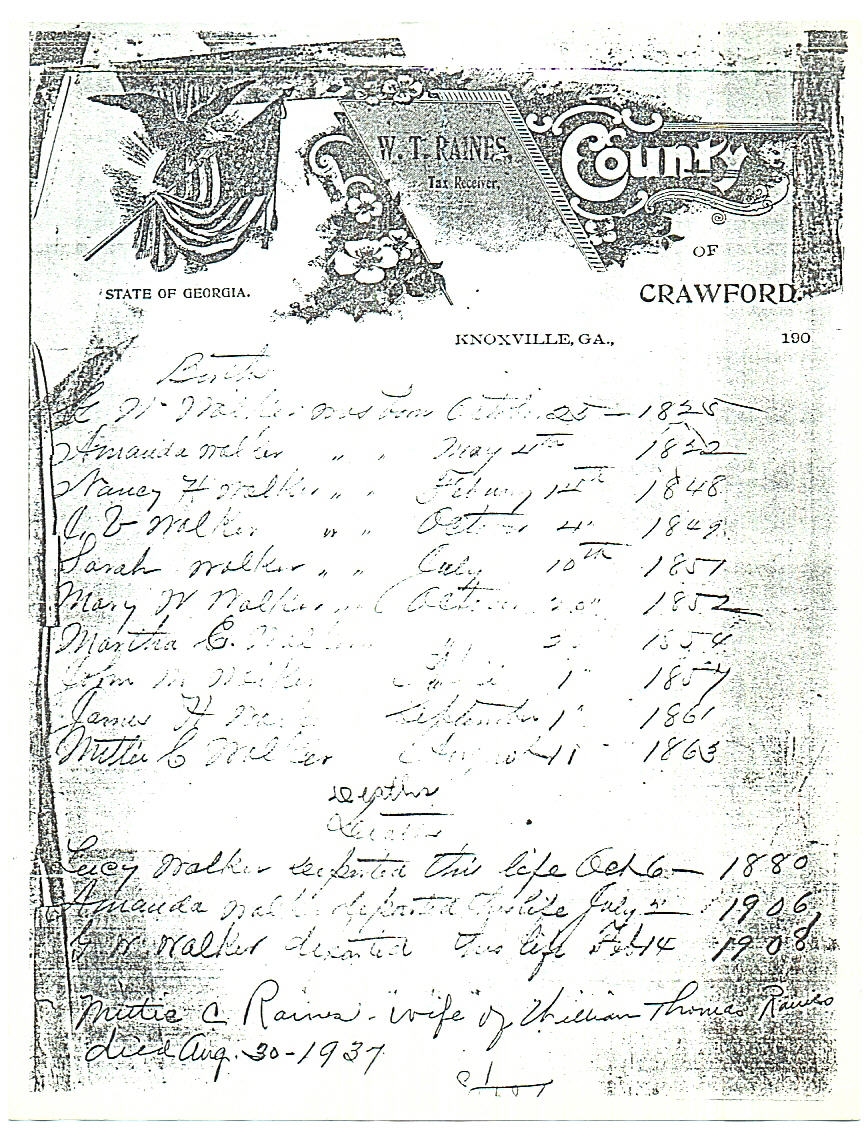 W. T. RAINES,
Tax Receiver,
County
OF
CRAWFORD.
STATE OF GEORGIA.
KNOXVILLE, GA., 190
Births
G W Walker was born October 25 - 1825
Amanda Walker " " May 4th
Nancy H Walker " " 14th 1848
Walker " " Octo 4" 1849
Sarah Walker " " July 10th 1851
Mary W Walker " October 1852
Martha E. Walker 1854
John M. Walker 1"
James H September 1" 1861
Mittie C Walker August 11 1863
Deaths
Lucy Walker departed this life Oct 6 - 1880
Amanda Walker departed this life July 1906
G W Walker departed this life Feb 14 1908
Mittie C Raines - "wife" of William Thomas Raines
died Aug. 30 - 1937